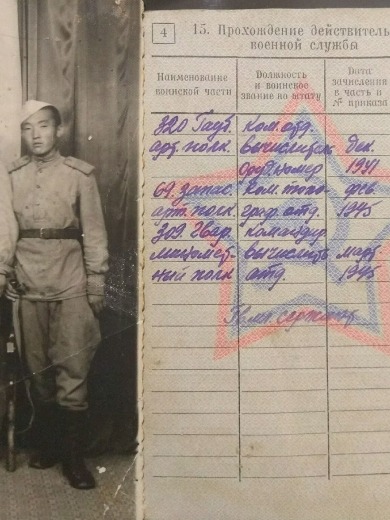 4
15. Прохождение действитель
военной службы
Наименование воинской части
Должность и воинское звание по штату
Дата зачисления в часть и № приказа
320 Гауб. Ком. отд.
арт. полк. вычислит. дек.
Оруд. номер 1941
69 запас. Ком. топо- фев.
арт. полк. граф. отд. 1945
309 Гвар. Командир
миномет- вычислит. март.
ный полк отд. 1945
Гвар. сержант